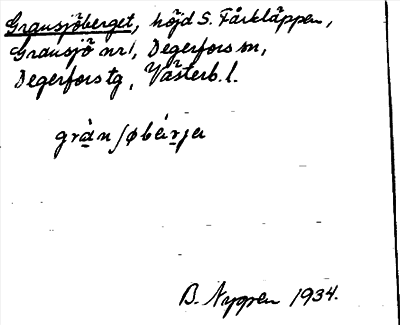 Gransjöberget, höjd S. Fårkläppen,
Gransjö nr 1, Degerfors sn,
Degerfors tg, Västerb. l.
grànʃøbérja
B. Nygren 1934.